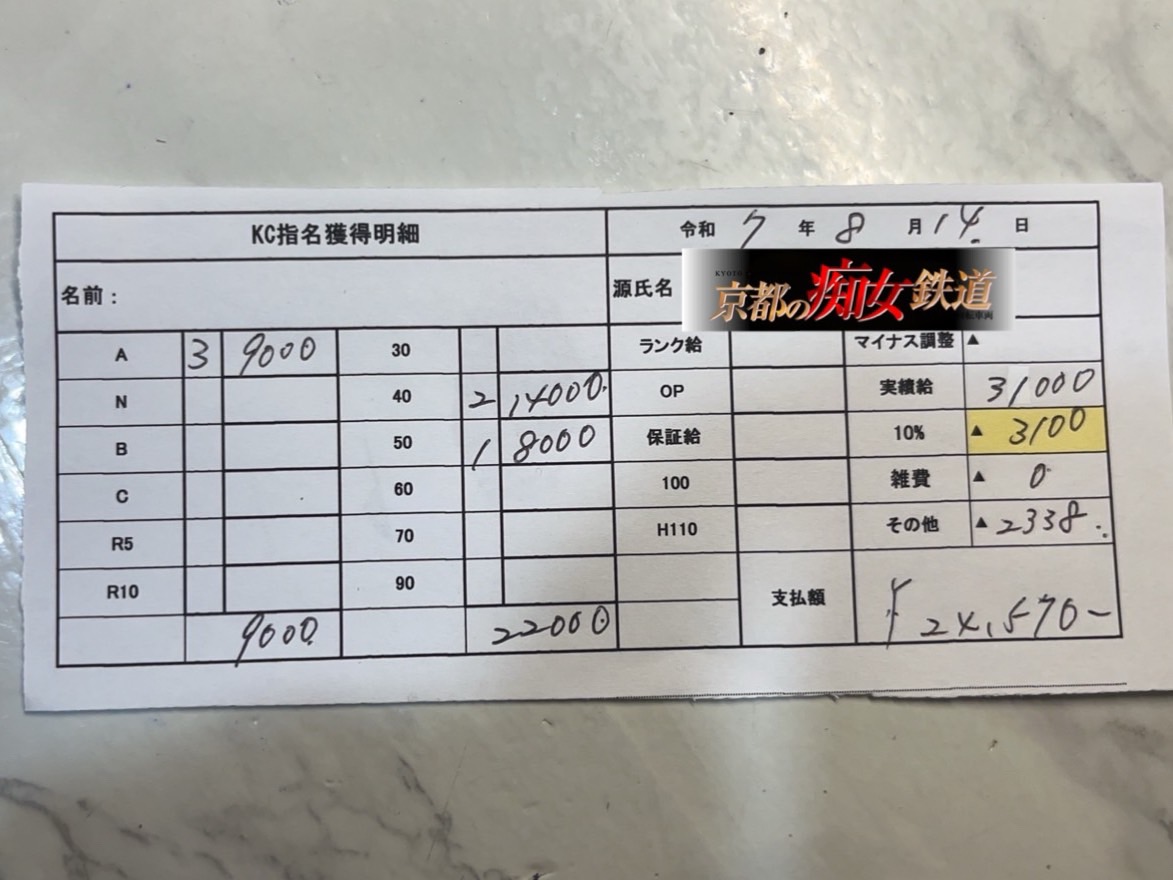 KC指名獲得明細
令和 7 年 8 月 14 日
名前：
源氏名
KYOTO
京都の痴女鉄道
A 3 9000 30 ランク給 マイナス調整 ▲
N 40 2 14000 OP 実績給 31000
B 50 1 8000 保証給 10% ▲ 3100
C 60 100 雑費 ▲ 0
R5 70 H110 その他 ▲ 2338
R10 90 支払額 ¥24,570-
9000 22000